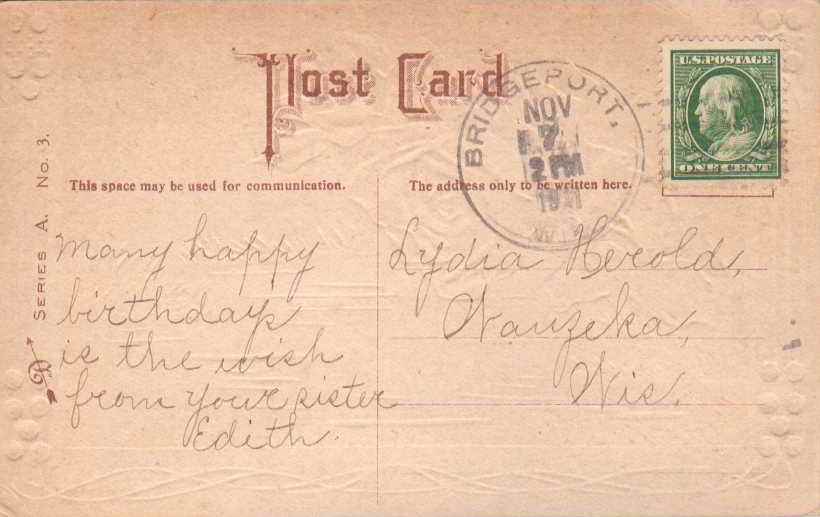 Post Card
BRIDGEPORT,
NOV
7
2 PM
U.S. POSTAGE
ONE CENT
SERIES A. No. 3.
This space may be used for communication.
The address only to be written here.
Many happy
birthdays
is the wish
from your sister
Edith.
Lydia Herold,
Wauzeka,
Wis.